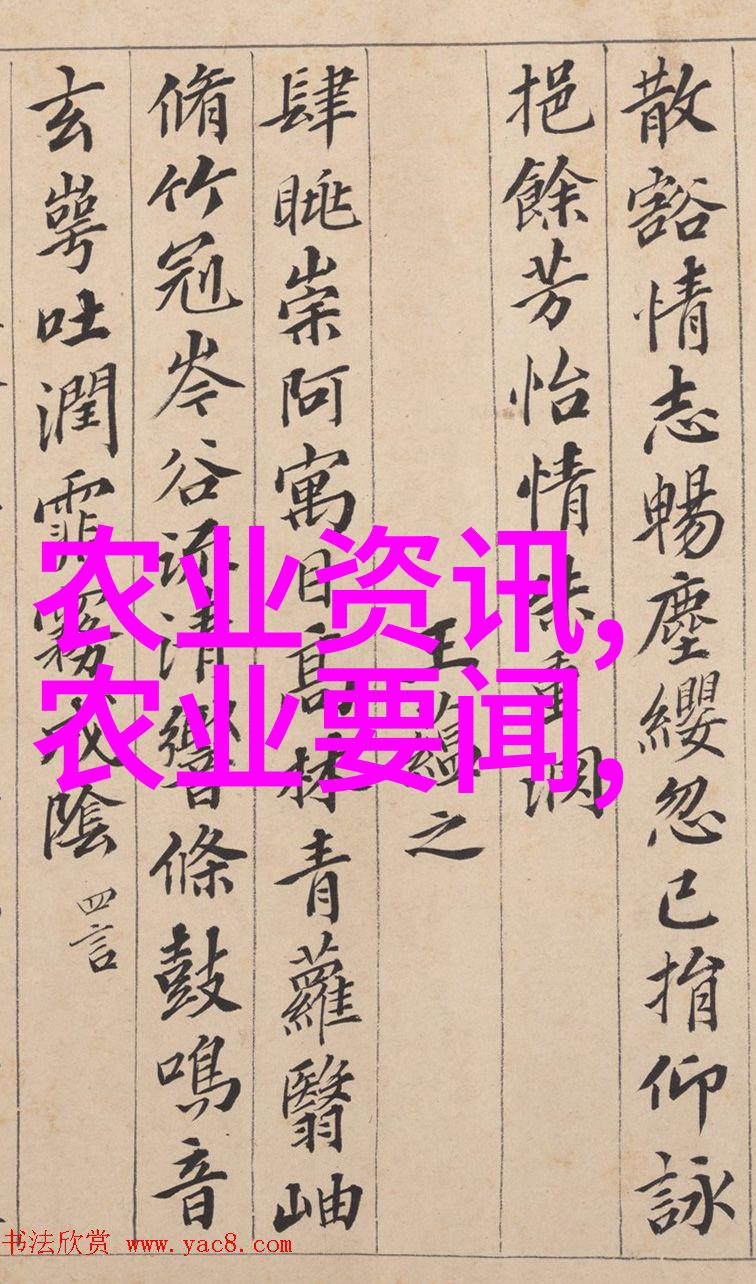 散豁情志暢塵纓忽已捐仰詠
挹餘芳怡情味重淵
王蘊之
肆眺崇阿寓目高林青蘿翳岫
脩竹冠岑谷流清響條鼓鳴音
玄崿吐潤霏霧成陰 四言
农业资讯,
农业要闻,
书法欣赏 www.yac8.com